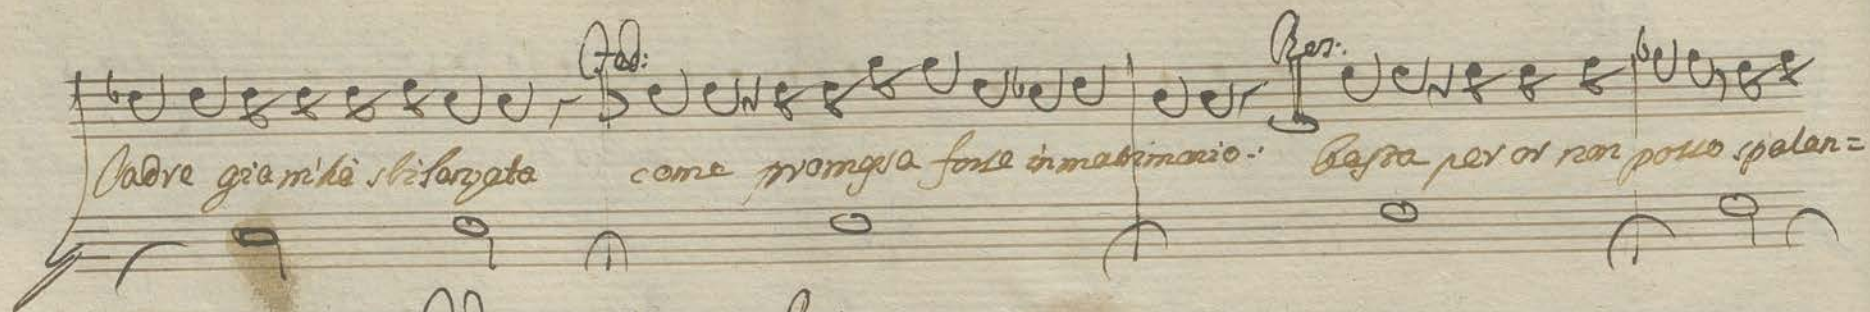 Fad: Ber:
Padre gia m'hà sbilanzata come promessa forse in matrimonio: basta per or non posso spalan=